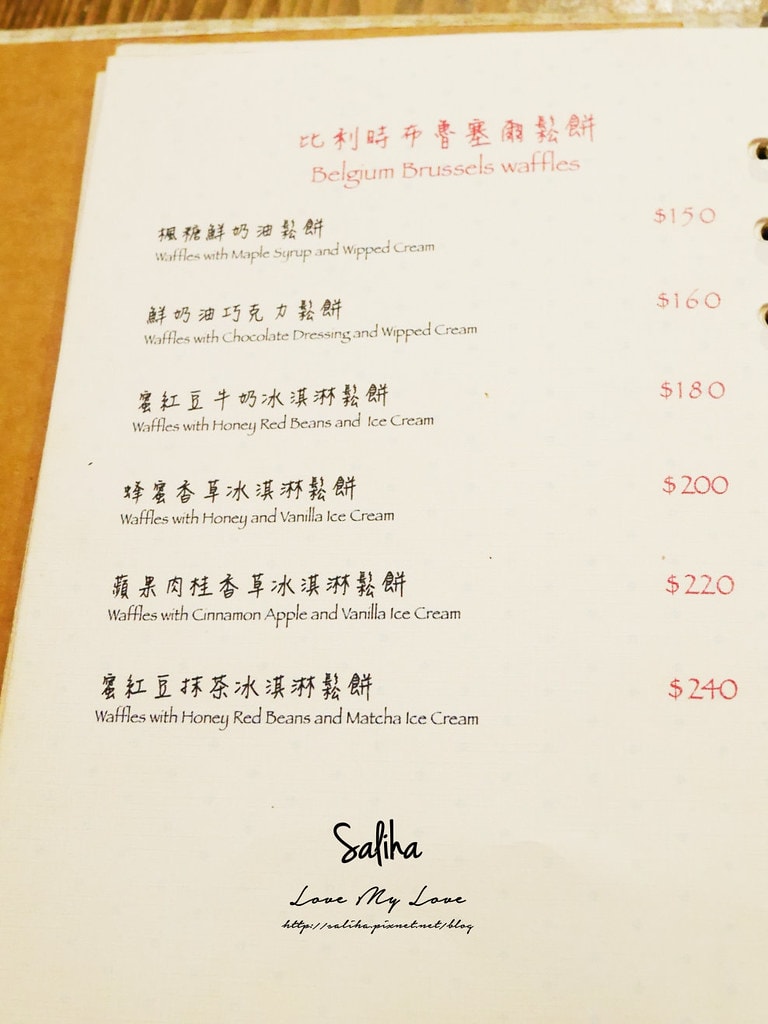 比利時布魯塞爾鬆餅
Belgium Brussels waffles
楓糖鮮奶油鬆餅 $150
Waffles with Maple Syrup and Wipped Cream
鮮奶油巧克力鬆餅 $160
Waffles with Chocolate Dressing and Wipped Cream
蜜紅豆牛奶冰淇淋鬆餅 $180
Waffles with Honey Red Beans and Ice Cream
蜂蜜香草冰淇淋鬆餅 $200
Waffles with Honey and Vanilla Ice Cream
蘋果肉桂香草冰淇淋鬆餅 $220
Waffles with Cinnamon Apple and Vanilla Ice Cream
蜜紅豆抹茶冰淇淋鬆餅 $240
Waffles with Honey Red Beans and Matcha Ice Cream
Saliha
Love My Love
http://saliha.pixnet.net/blog